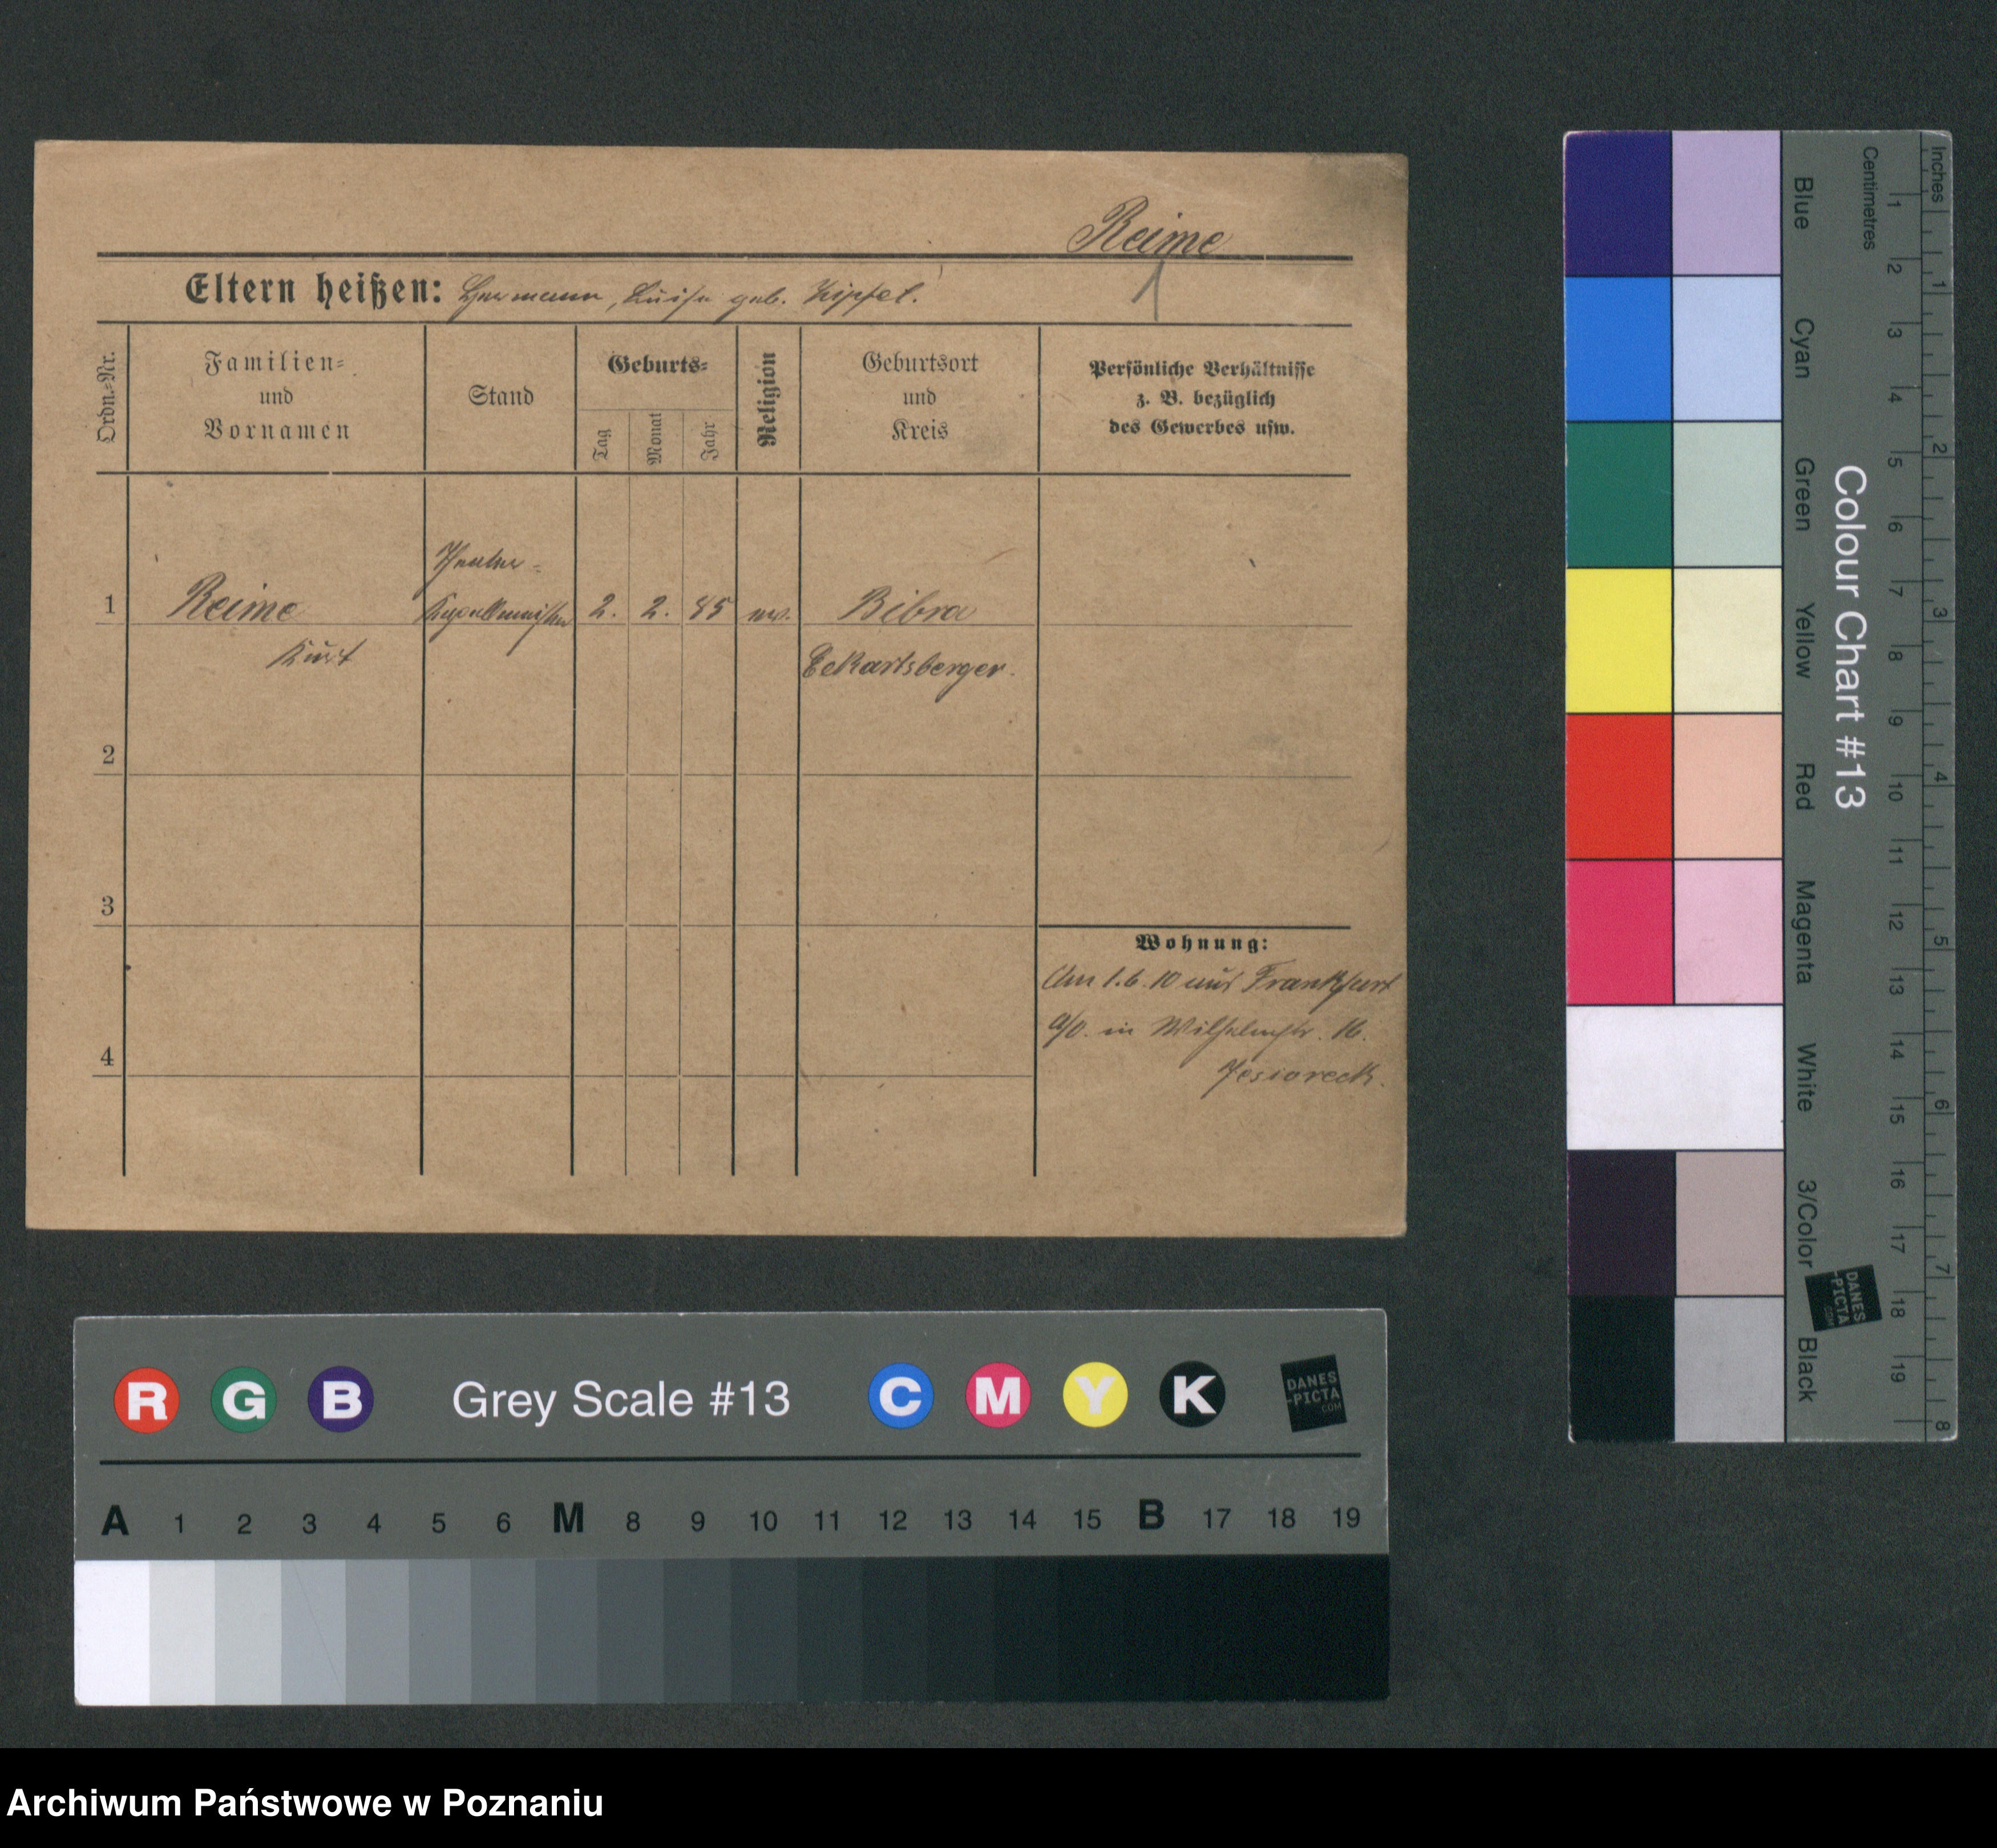 Reime
Eltern heißen: Hermann, Luise geb. Zipfel.
Ordn=Nr.
Familien=
und
Vornamen
Stand
Geburts=
Tag
Monat
Jahr
Religion
Geburtsort
und
Kreis
Persönliche Verhältnisse
z. B. bezüglich
des Gewerbes usw.
Theater=
1 Reime Kapellmeister 2. 2. 85 ev. Bibra
Kurt Eckartsberger.
2
3
4
Wohnung:
Am 1.6.10 aus Frankfurt
a/O. in Wilhelmstr. 16.
Jesioreck.
Blue
Cyan
Green
Yellow
Red
Magenta
White
3/Color
Black
Colour Chart #13
Centimetres
1 2 3 4 5 6 7 8 9 10 11 12 13 14 15 16 17 18 19
Inches
1 2 3 4 5 6 7 8
DANES
-PICTA
.COM
R G B Grey Scale #13 C M Y K
DANES
-PICTA
.COM
A 1 2 3 4 5 6 M 8 9 10 11 12 13 14 15 B 17 18 19
Archiwum Państwowe w Poznaniu